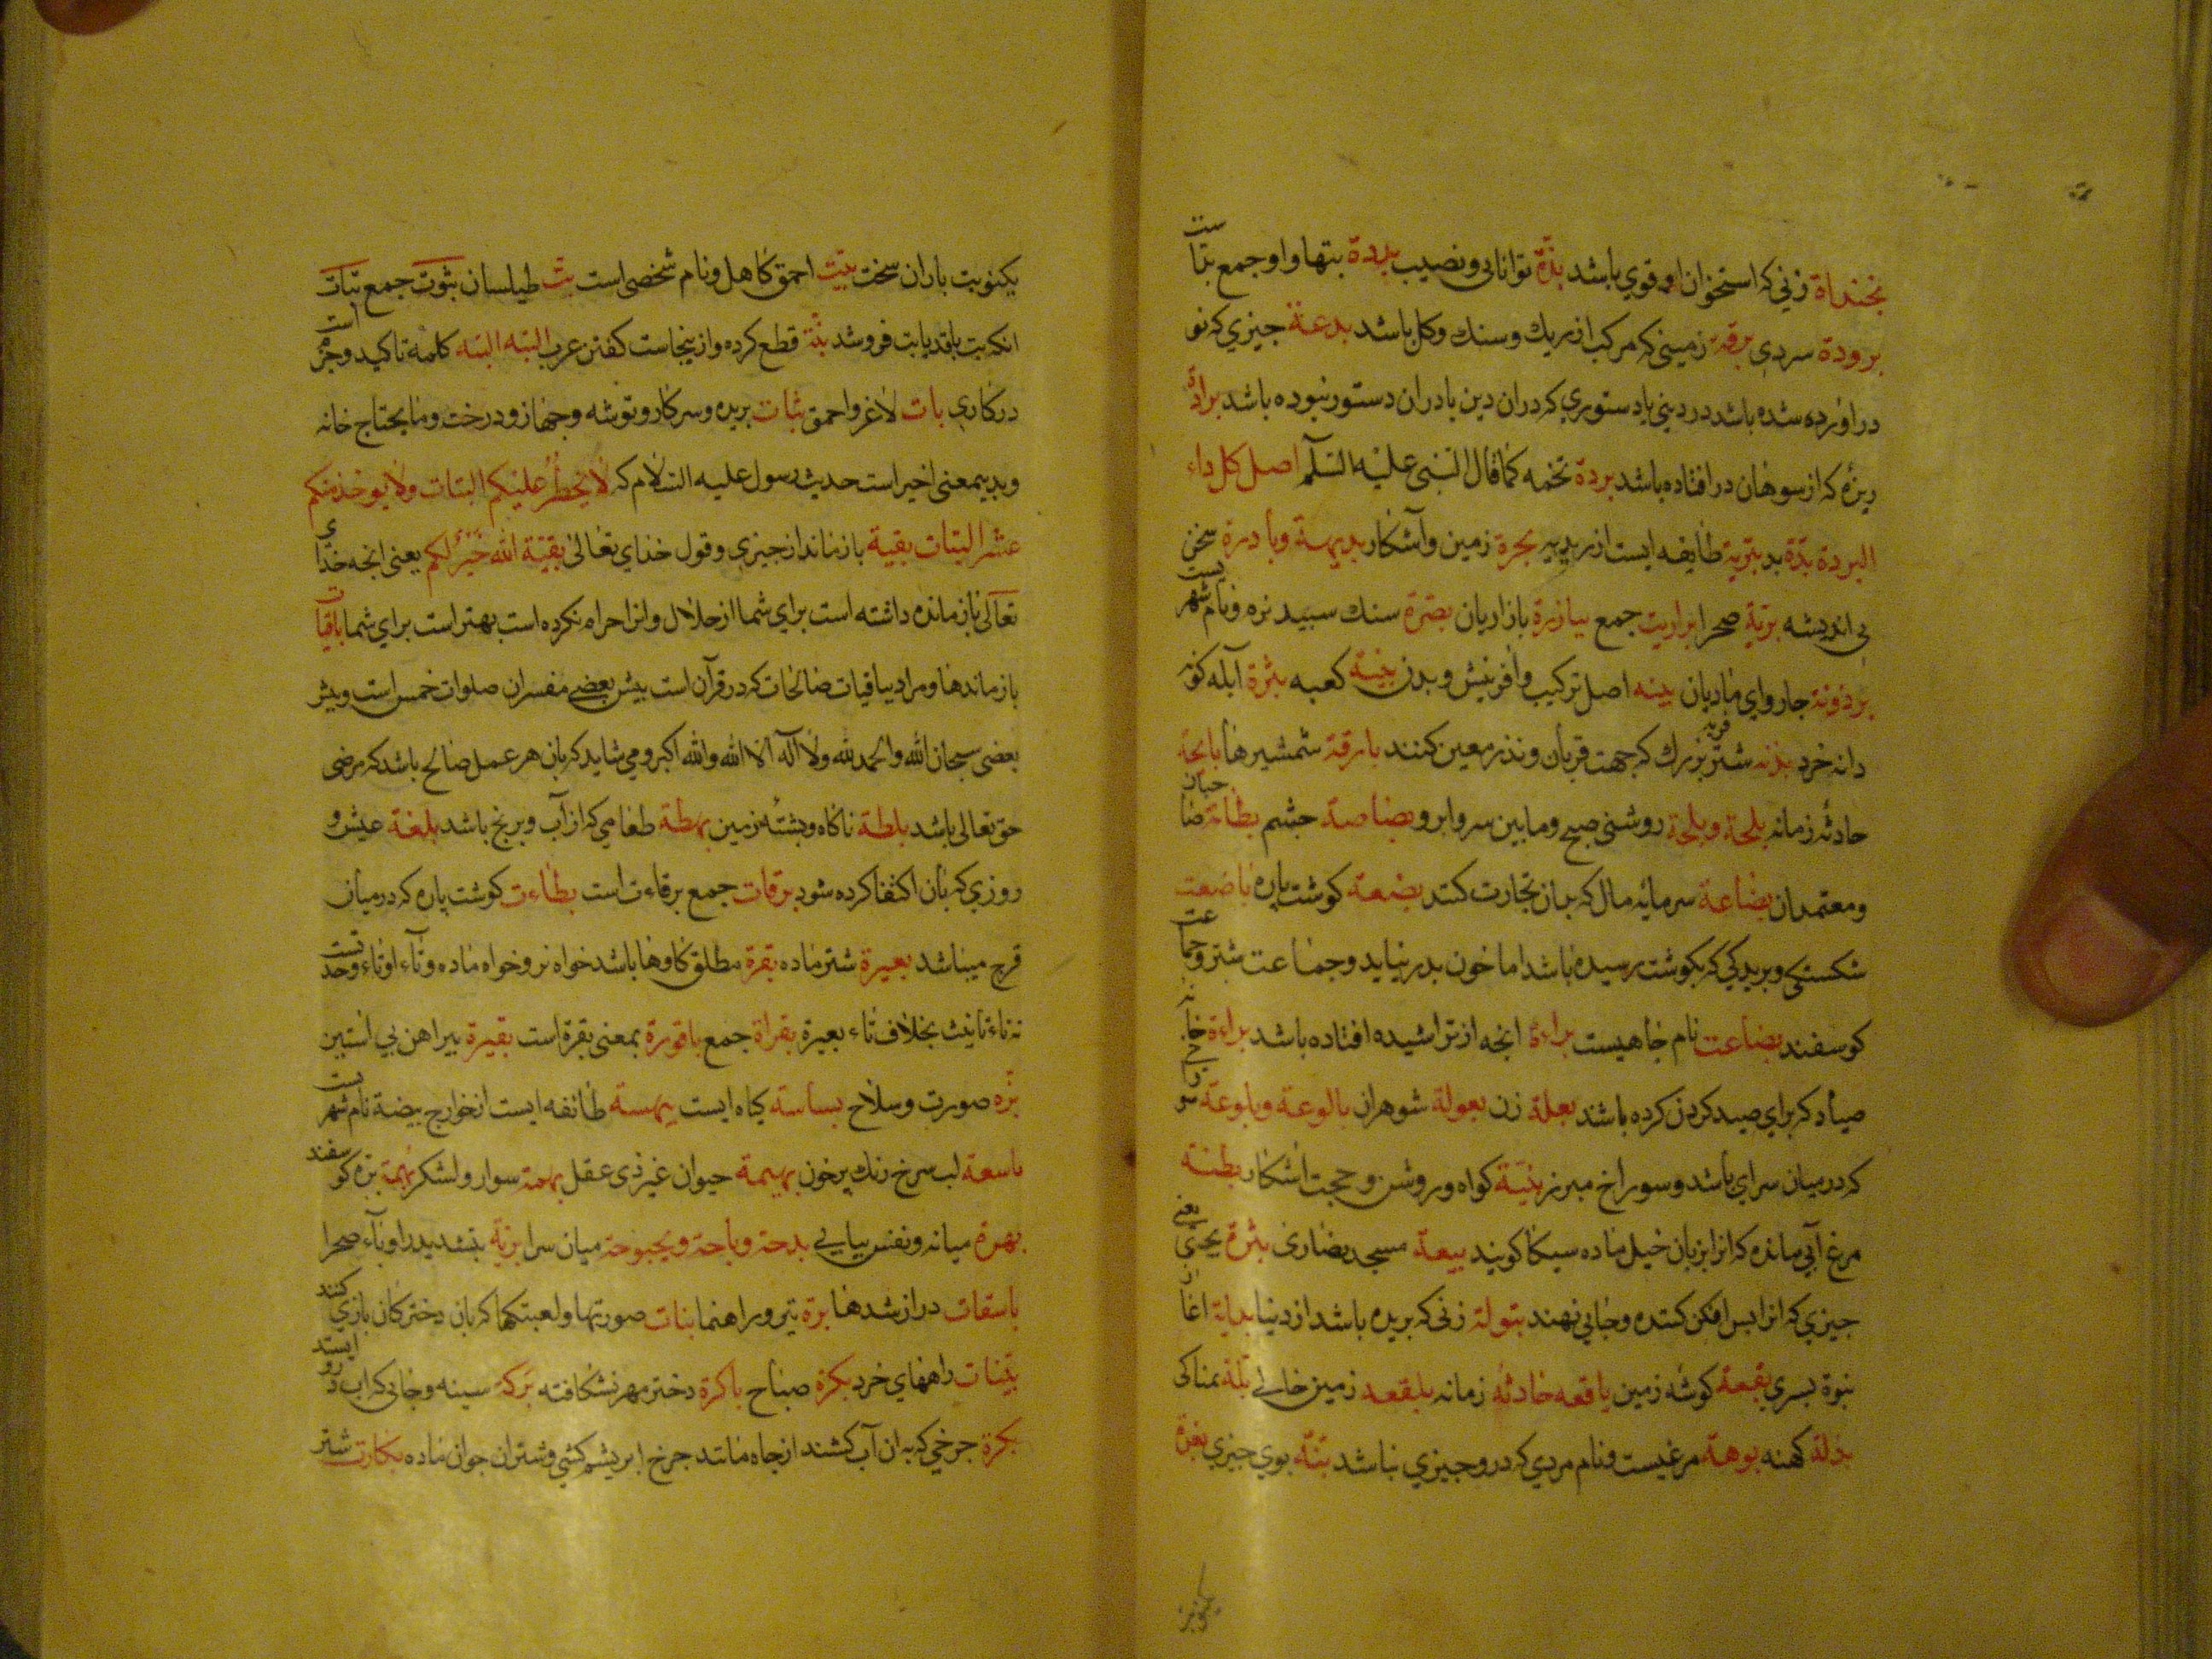 بخنداة زني كه استخوان او قوي باشد بذة توانايي و نصيب بددة بتها و او جمع بتاست
برودة سردي برقة زميني كه مركب از ريك و سنك و كل باشد بدعة جيزي كه نو
دراورده شده باشد در ديني يا دستوري كه دران دين يا دران دستور نبوده باشد برادة
ريزهٔ كه از سوهان در افتاده باشد بردة تخمه كما قال النبي عليه السلم اصل كل داء
البردة بذة بد بترية طايفه ايست از زيديه بحرة زمين و آشكار بديهة و بادرة سخن
بي انديشه برية صحرا براريت جمع بيازرة بازاريان بصرة سنك سبيد نره و نام شهريست
برذونة جارواي ماديان بينه اصل تركيب و افرينش و بدن بنية كعبه بثرة آبله كونه
دانه خرد بدنه شتر بزرك فربه كه جهت قربان و نذر معين كنند بارقة شمشيرها بايجة
حادثه زمانه بلجة و بلجة روشني صبح و ما بين سر و ابرو بصاصة جشم بطانة صاحبان
و معتمدان بضاعة سرمايه مال كه بدان تجارت كنند بضعة كوشت پاره باضعت
شكستكي و بريدكي كه بكوشت رسيده باشد اما خون بدر نيايد و جماعت شتر و جماعت
كوسفند بضاعت نام جاهيست براءة انجه از تراشيده افتاده باشد براءة خانه
صياد كه براي صيد كردن كرده باشد بعلة زن بعولة شوهران بالوعة و بلوعة سوراخ
كه در ميان سراي باشد و سوراخ مبرز بينة كواه و روشن و حجت اشكار بطنة
مرغ آبي ماده كه انرا بزبان خيل ماده سيكا كويند بيعة مسجد نصاري بثرة يعني
جيزي كه انرا بس افكن كنند و جايي نهند بتولة زني كه بريده باشد از دنيا بداية اغاز
نبوة بسري بقعة كوشه زمين باقعه حادثه زمانه بلقعه زمين خالي بلة نمناكي
بذلة كهنه بوهة مرغيست و نام مردي كه در و جيزي نباشد بنة بوي جيزي بغزة
يكنوبت باران سخت بيت احمق كاهل و نام شخصي است بت طيلسان بتوت جمع بتات
انكه بت بافد يا بت فروشد بتة قطع كرده و از ينجاست كفتن عرب البته البته كلمه تاكيد و جزم است
در كاري بات لاغر و احمق بتات بريده و سر كار و توشه و جهاز و درخت و ما يحتاج خانه
و بديمعني اخير است حديث رسول عليه السلام كه لا يحظر عليكم البتات ولا يوخذ منكم
عشر البتات بقية باز ماند از جيزي و قول خداي تعالي بقية الله خير لكم يعني انجه خداي
تعالي باز مانده داشته است براي شما از حلال و انرا حرام نكرده است بهتر است براي شما باقيات
باز ماندها و مراد بباقيات صالحات كه در قرآن است بيش بعضي مفسران صلوات خمس است و بيش
بعضي سبحان الله والحمد لله ولا اله الا الله والله اكبر و مي شايد كه بان هر عمل صالح باشد كه مرضي
حق تعالي باشد بلطة ناكاه و بشتهٔ زمين بهطة طعامي كه از آب و برنج باشد بلغة عيش و
روزي كه بان اكتفا كرده شود برقات جمع برقاء ت است بطاءت كوشت پاره كه در ميان
فرج ميباشد بعيرة شتر ماده بقرة مطلق كاوها باشد خواه نر و خواه ماده و تآء او تاء وحدتست
نه تاء تانيث بخلاف تاء بعيرة بقراة جمع باقورة بمعني بقرة است بقيرة بيراهن بي استين
بزه صورت و سلاح بساسة كياه ايست بيهسة طائفه ايست از خوارج بيضة نام شهريست
باسعة لب سرخ رنك پر خون بهيمة حيوان غير ذي عقل بهمة سوار و لشكر بهمة بزه كوسفند
بهرة ميانه و نفس بيابي بدحة و باحة و بحبوحة ميان سرا برية بتشديد را و يآء صحرا
باسقات دراز شدها برة تير و راهنما بنات صورتها و لعبتكها كه بان دختركان بازي كنند
بنيات راههاي خرد بكرة صباح باكرة دختر مهر نشكافته بركة سينه و جايي كه اب درو ايستد
بكرة جرخي كه به ان آب كشند از جاه مانند جرخ ابريشم كشي و شتران جوان ماده بكارت شتر